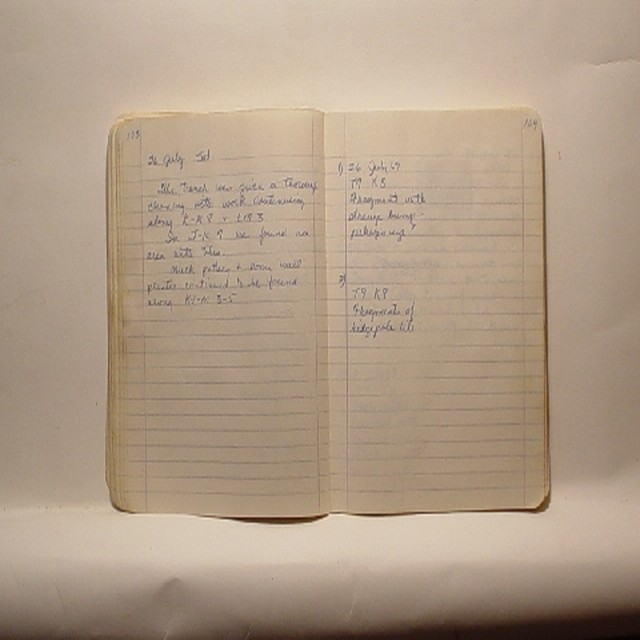 103
26 July Sat
The Trench was given a thorough
cleaning with work continuing
along K-A 8 +
In J-K 9 we found an
area with tiles.
Much pottery & some wall
plaster continued to be found
along 3-5
104
1) 26 July 69
T9 K8
Fragment with
strange bump-
2)
T9 K8
Fragments of
ridgepole tile